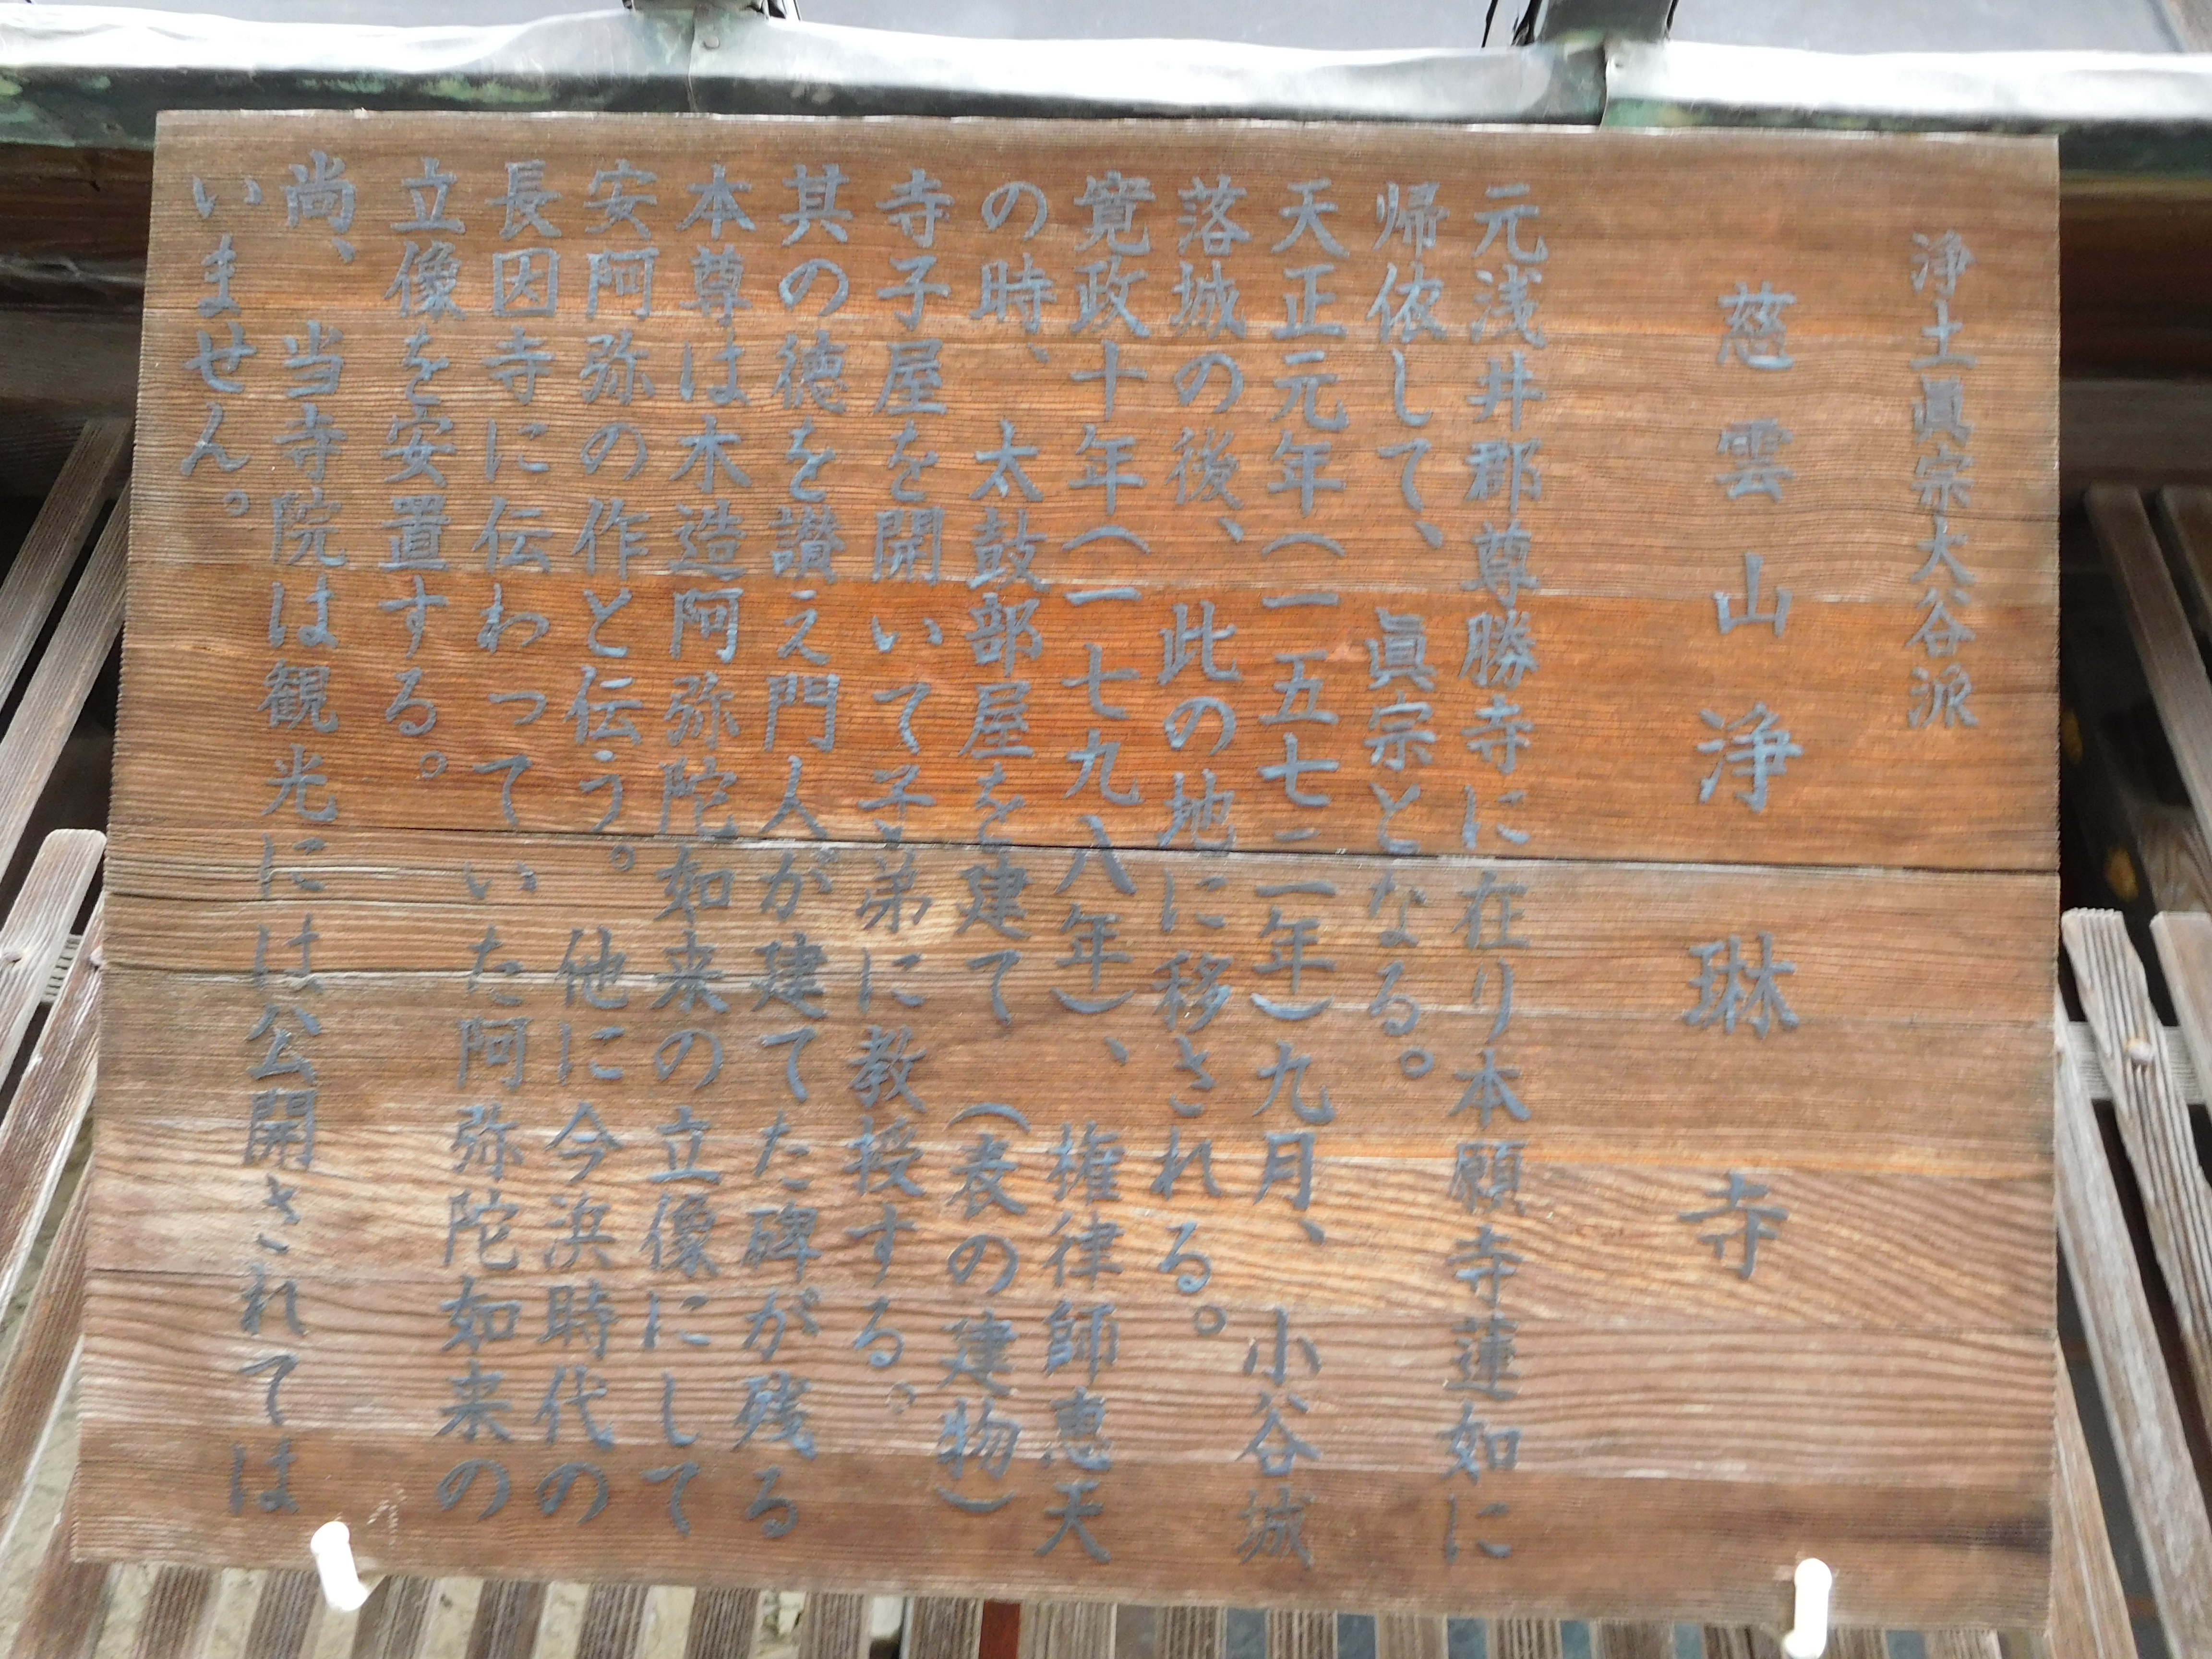 浄土眞宗大谷派
慈雲山浄琳寺
元浅井郡尊勝寺に在り本願寺蓮如に
帰依して、眞宗となる。
天正元年（一五七二年）九月、小谷城
落城の後、此の地に移される。
寛政十年（一七九八年）、権律師恵天
の時、太鼓部屋を建て（表の建物）
寺子屋を開いて子弟に教授する。
其の徳を讃え門人が建てた碑が残る
本尊は木造阿弥陀如来の立像にして
安阿弥の作と伝う。他に今浜時代の
長因寺に伝わっていた阿弥陀如来の
立像を安置する。
尚、当寺院は観光には公開されては
いません。